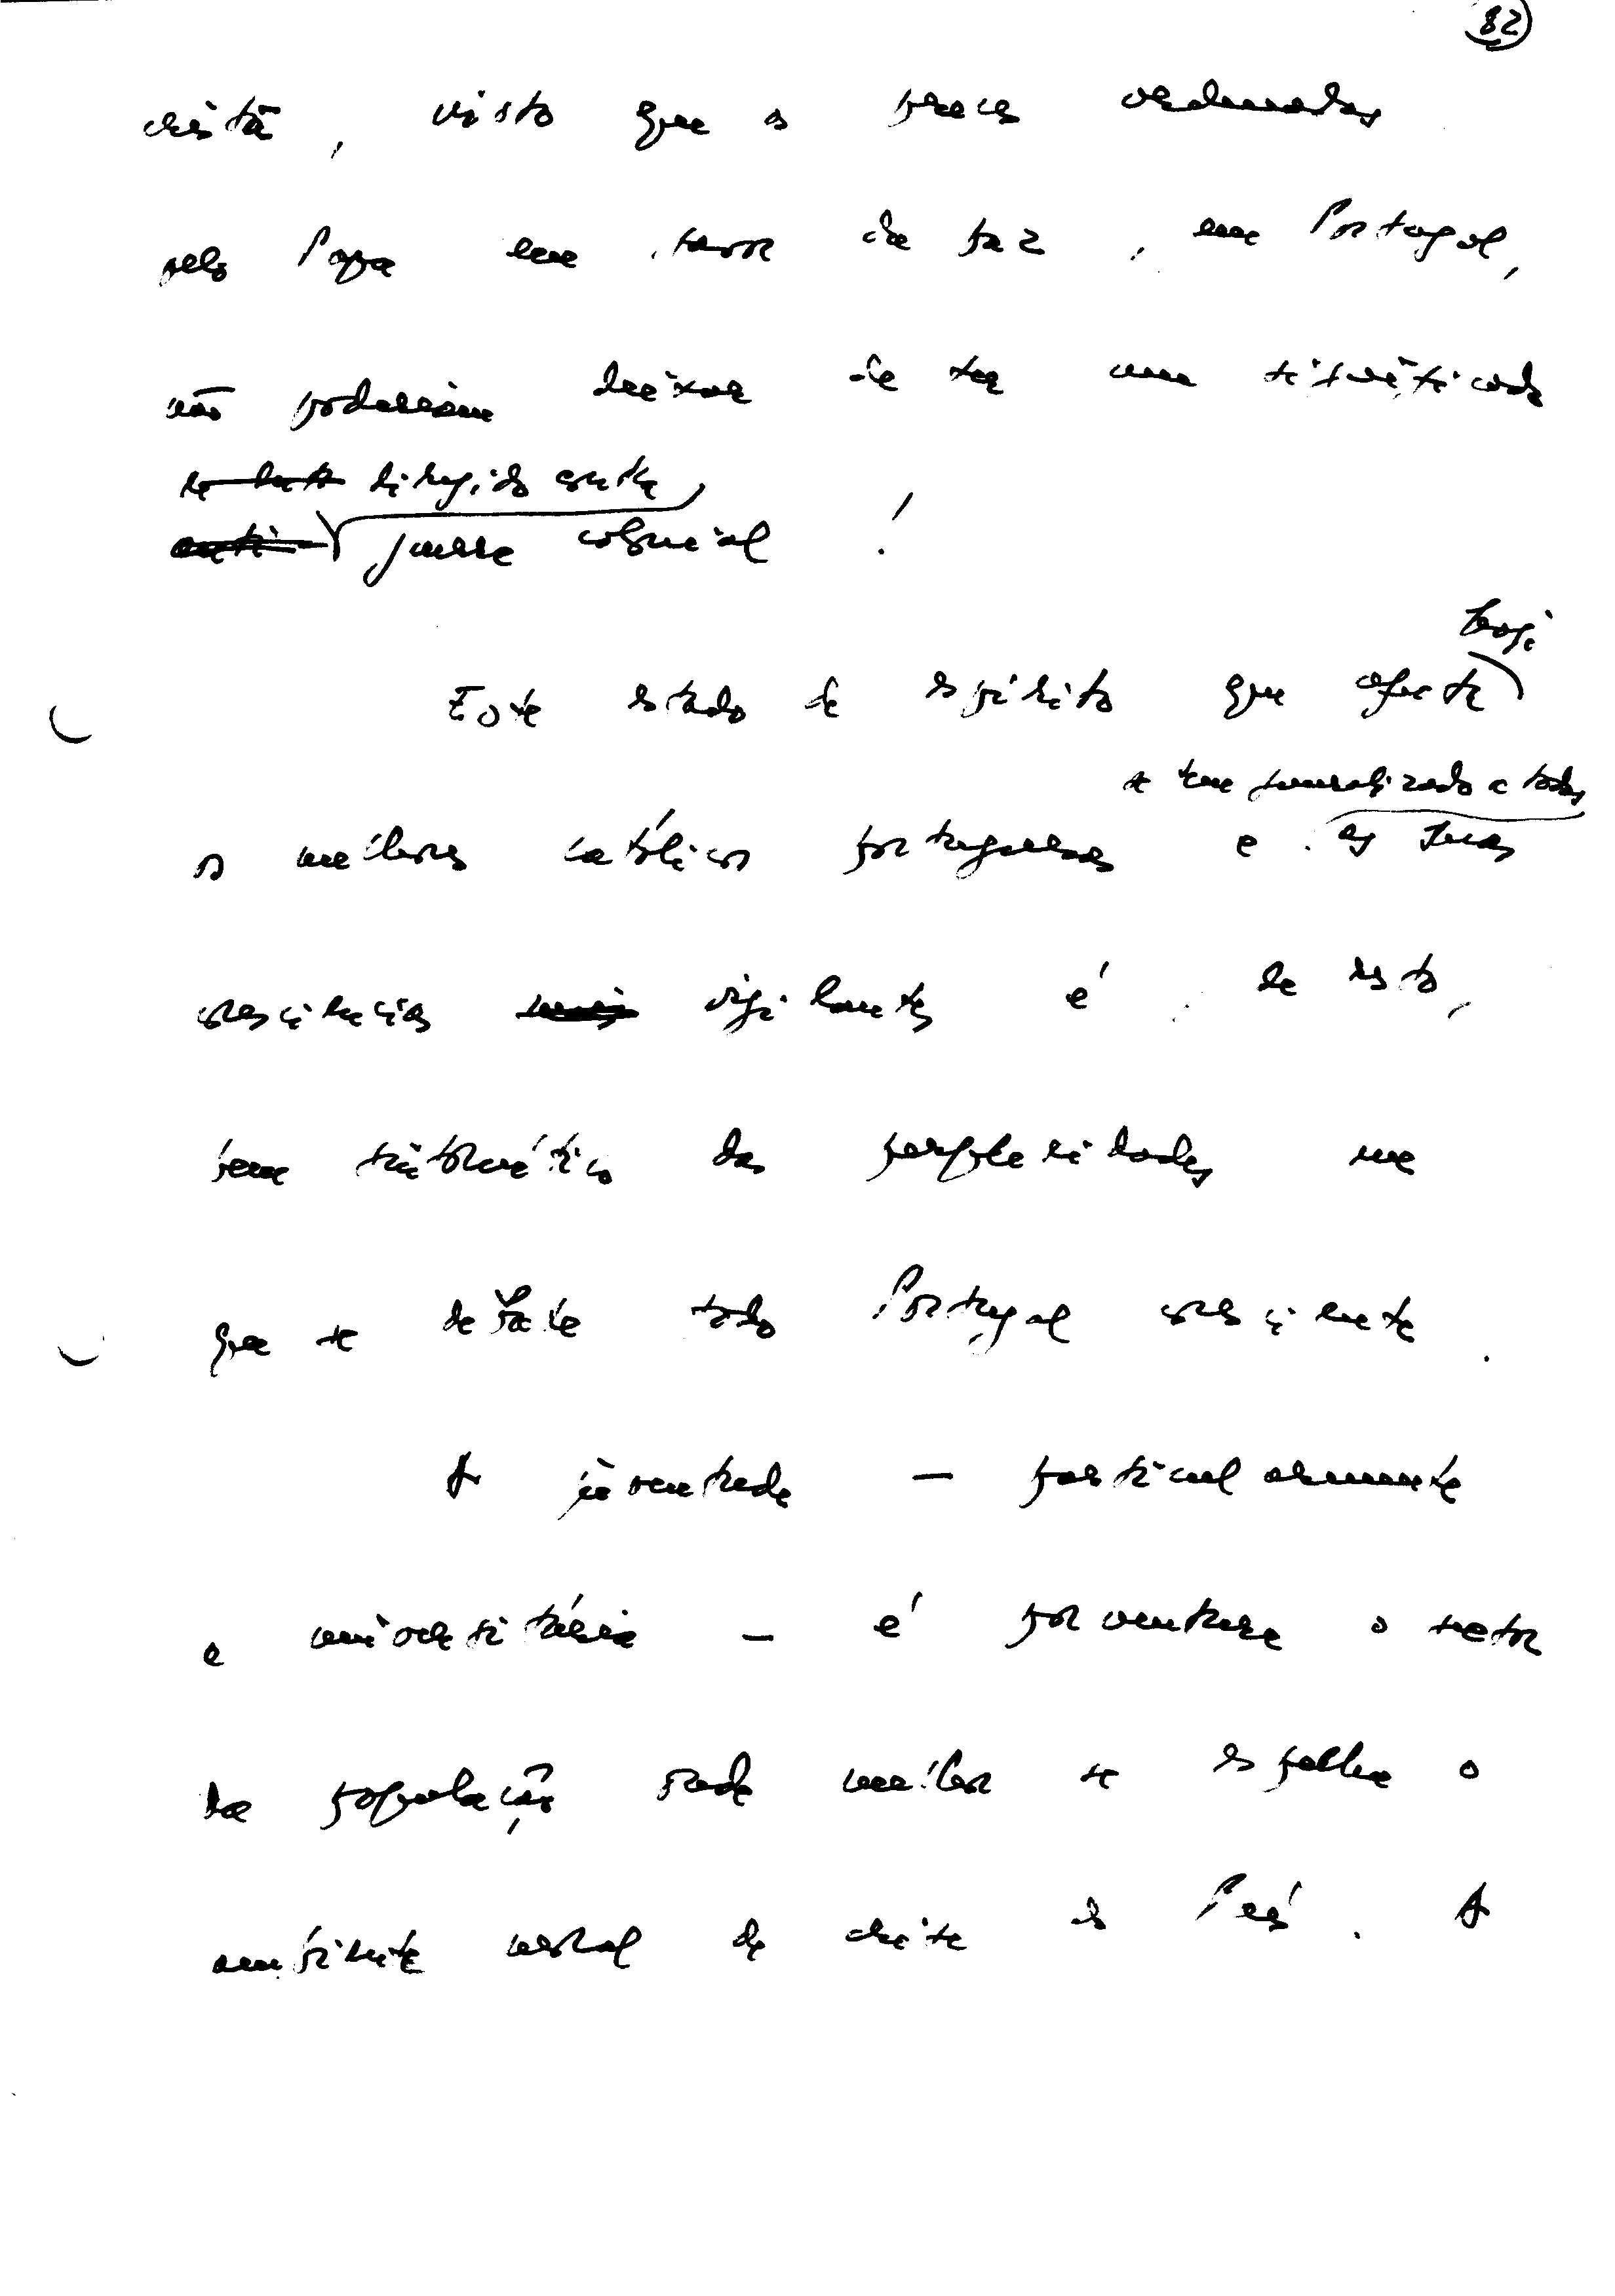 82
cristã, visto que as preces ordenadas
pelo Papa em favor da paz, em Portugal,
não poderiam deixar de ter um significado
dirigido contra
anti guerra colonial!
hoje
Este estado de espírito que afecta
se tem generalizado a todas
os melhores católicos portugueses e as suas
consciências mais vigilantes é, de resto,
bem sintomático das perplexidades em
que se debate todo Portugal consciente.
A juventude — particularmente
a universitária — é porventura o sector
da população onde melhor se espelha o
ambiente moral de crise do País. A